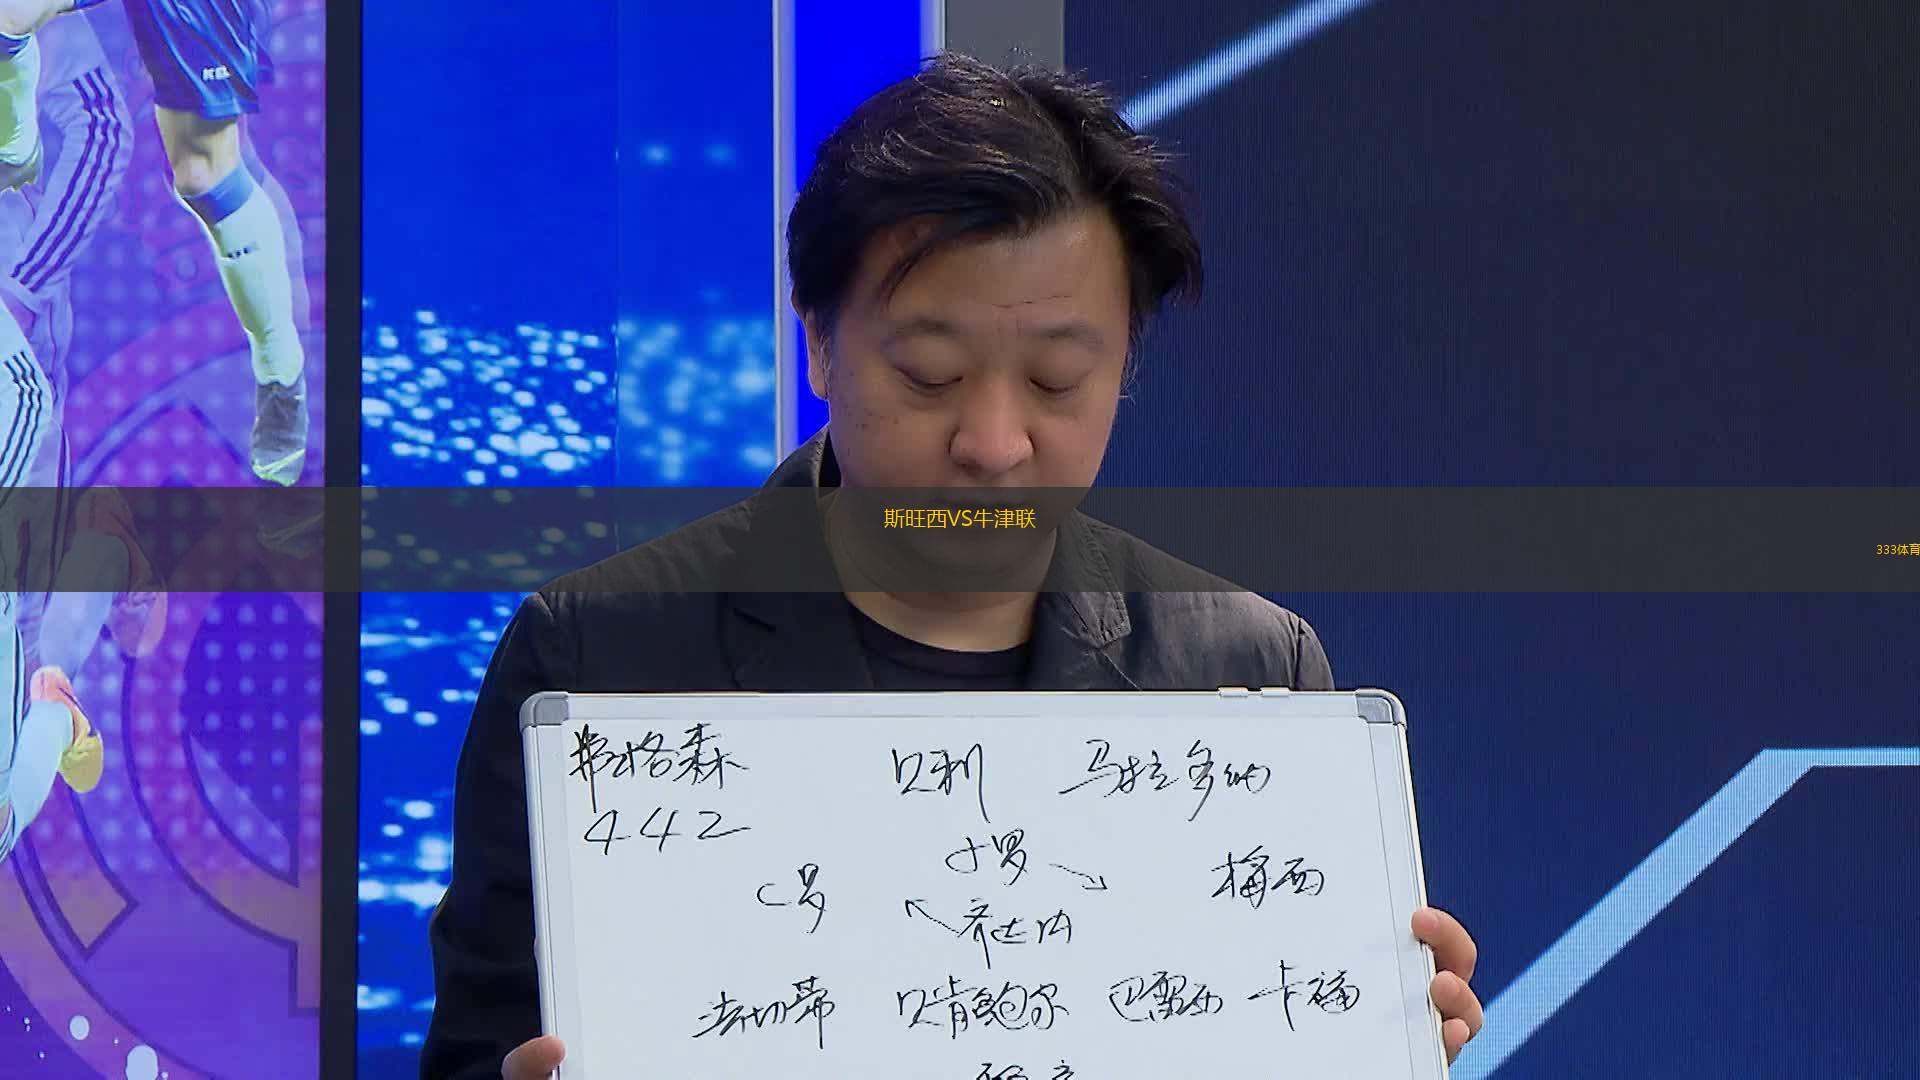 斯旺西VS牛津联
333体育
弗格森
贝利 马拉多纳
442
小罗
C罗 梅西
齐达内
法切蒂 贝肯鲍尔 巴雷西 卡福